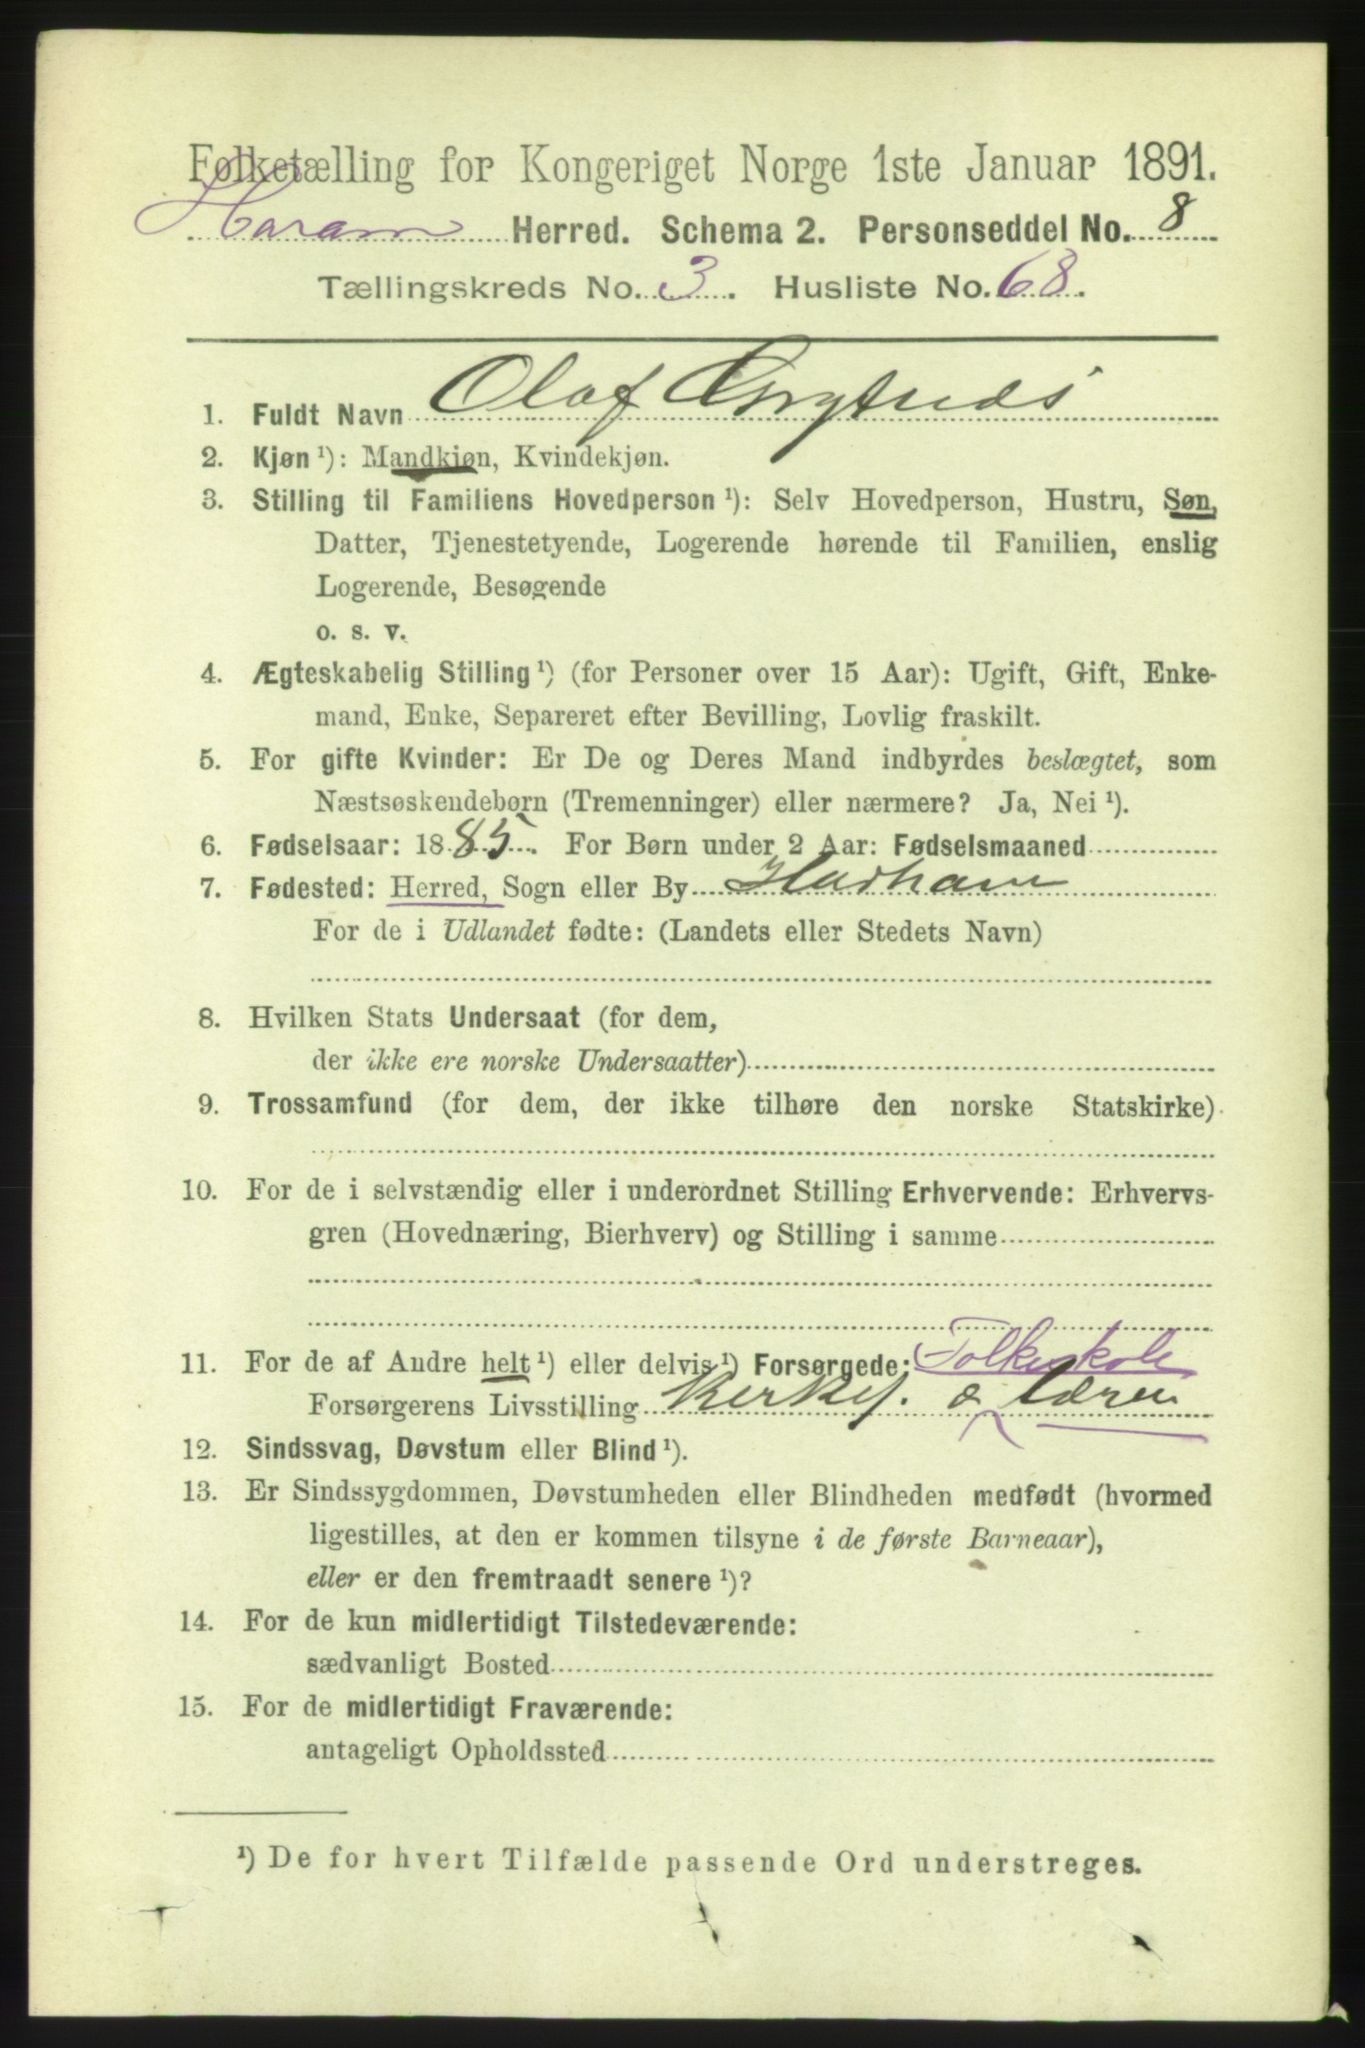 Folketælling for Kongeriget Norge 1ste Januar 1891.
Haram Herred. Schema 2. Personseddel No. 8
Tællingskreds No. 3. Husliste No. 68.
1. Fuldt Navn Olaf
2. Kjøn ¹): Mandkjøn, Kvindekjøn.
3. Stilling til Familiens Hovedperson ¹): Selv Hovedperson, Hustru, Søn,
Datter, Tjenestetyende, Logerende hørende til Familien, enslig
Logerende, Besøgende
o. s. v.
4. Ægteskabelig Stilling ¹) (for Personer over 15 Aar): Ugift, Gift, Enke-
mand, Enke, Separeret efter Bevilling, Lovlig fraskilt.
5. For gifte Kvinder: Er De og Deres Mand indbyrdes beslægtet, som
Næstsøskendebørn (Tremenninger) eller nærmere? Ja, Nei ¹).
6. Fødselsaar: 1885. For Børn under 2 Aar: Fødselsmaaned
7. Fødested: Herred, Sogn eller By Harham
For de i Udlandet fødte: (Landets eller Stedets Navn)
8. Hvilken Stats Undersaat (for dem,
der ikke ere norske Undersaatter)
9. Trossamfund (for dem, der ikke tilhøre den norske Statskirke)
10. For de i selvstændig eller i underordnet Stilling Erhvervende: Erhvervs-
gren (Hovednæring, Bierhverv) og Stilling i samme
11. For de af Andre helt ¹) eller delvis ¹) Forsørgede: Folkeskole
Forsørgerens Livsstilling Kirkes. & lærer
12. Sindssvag, Døvstum eller Blind ¹).
13. Er Sindssygdommen, Døvstumheden eller Blindheden medfødt (hvormed
ligestilles, at den er kommen tilsyne i de første Barneaar),
eller er den fremtraadt senere ¹)?
14. For de kun midlertidigt Tilstedeværende:
sædvanligt Bosted
15. For de midlertidigt Fraværende:
antageligt Opholdssted
¹) De for hvert Tilfælde passende Ord understreges.